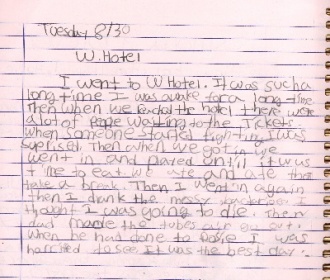 Tuesday 8/30
W.Hotel
I went to W Hotel. It was such a
long time I was awake for a long time.
Then when we reached the hotel there were
alot of pepe waiting to the Ticket
when someone started fighting I was
suprised. Then when we got in we
went in and played until it wus
time to eat we ate and ate then
take a break. Then I went in again
then I drank the messy
thought I was going to die. Then
dad made the tubes air out.
when he had done to I was
to see. It was the best day.